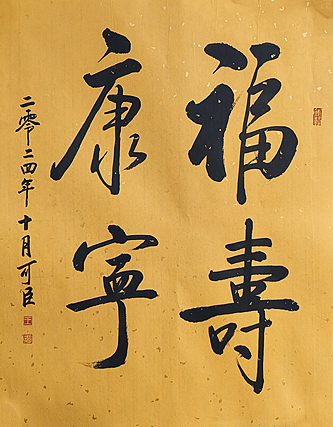 福壽
康寧
二零二四年十月可臣